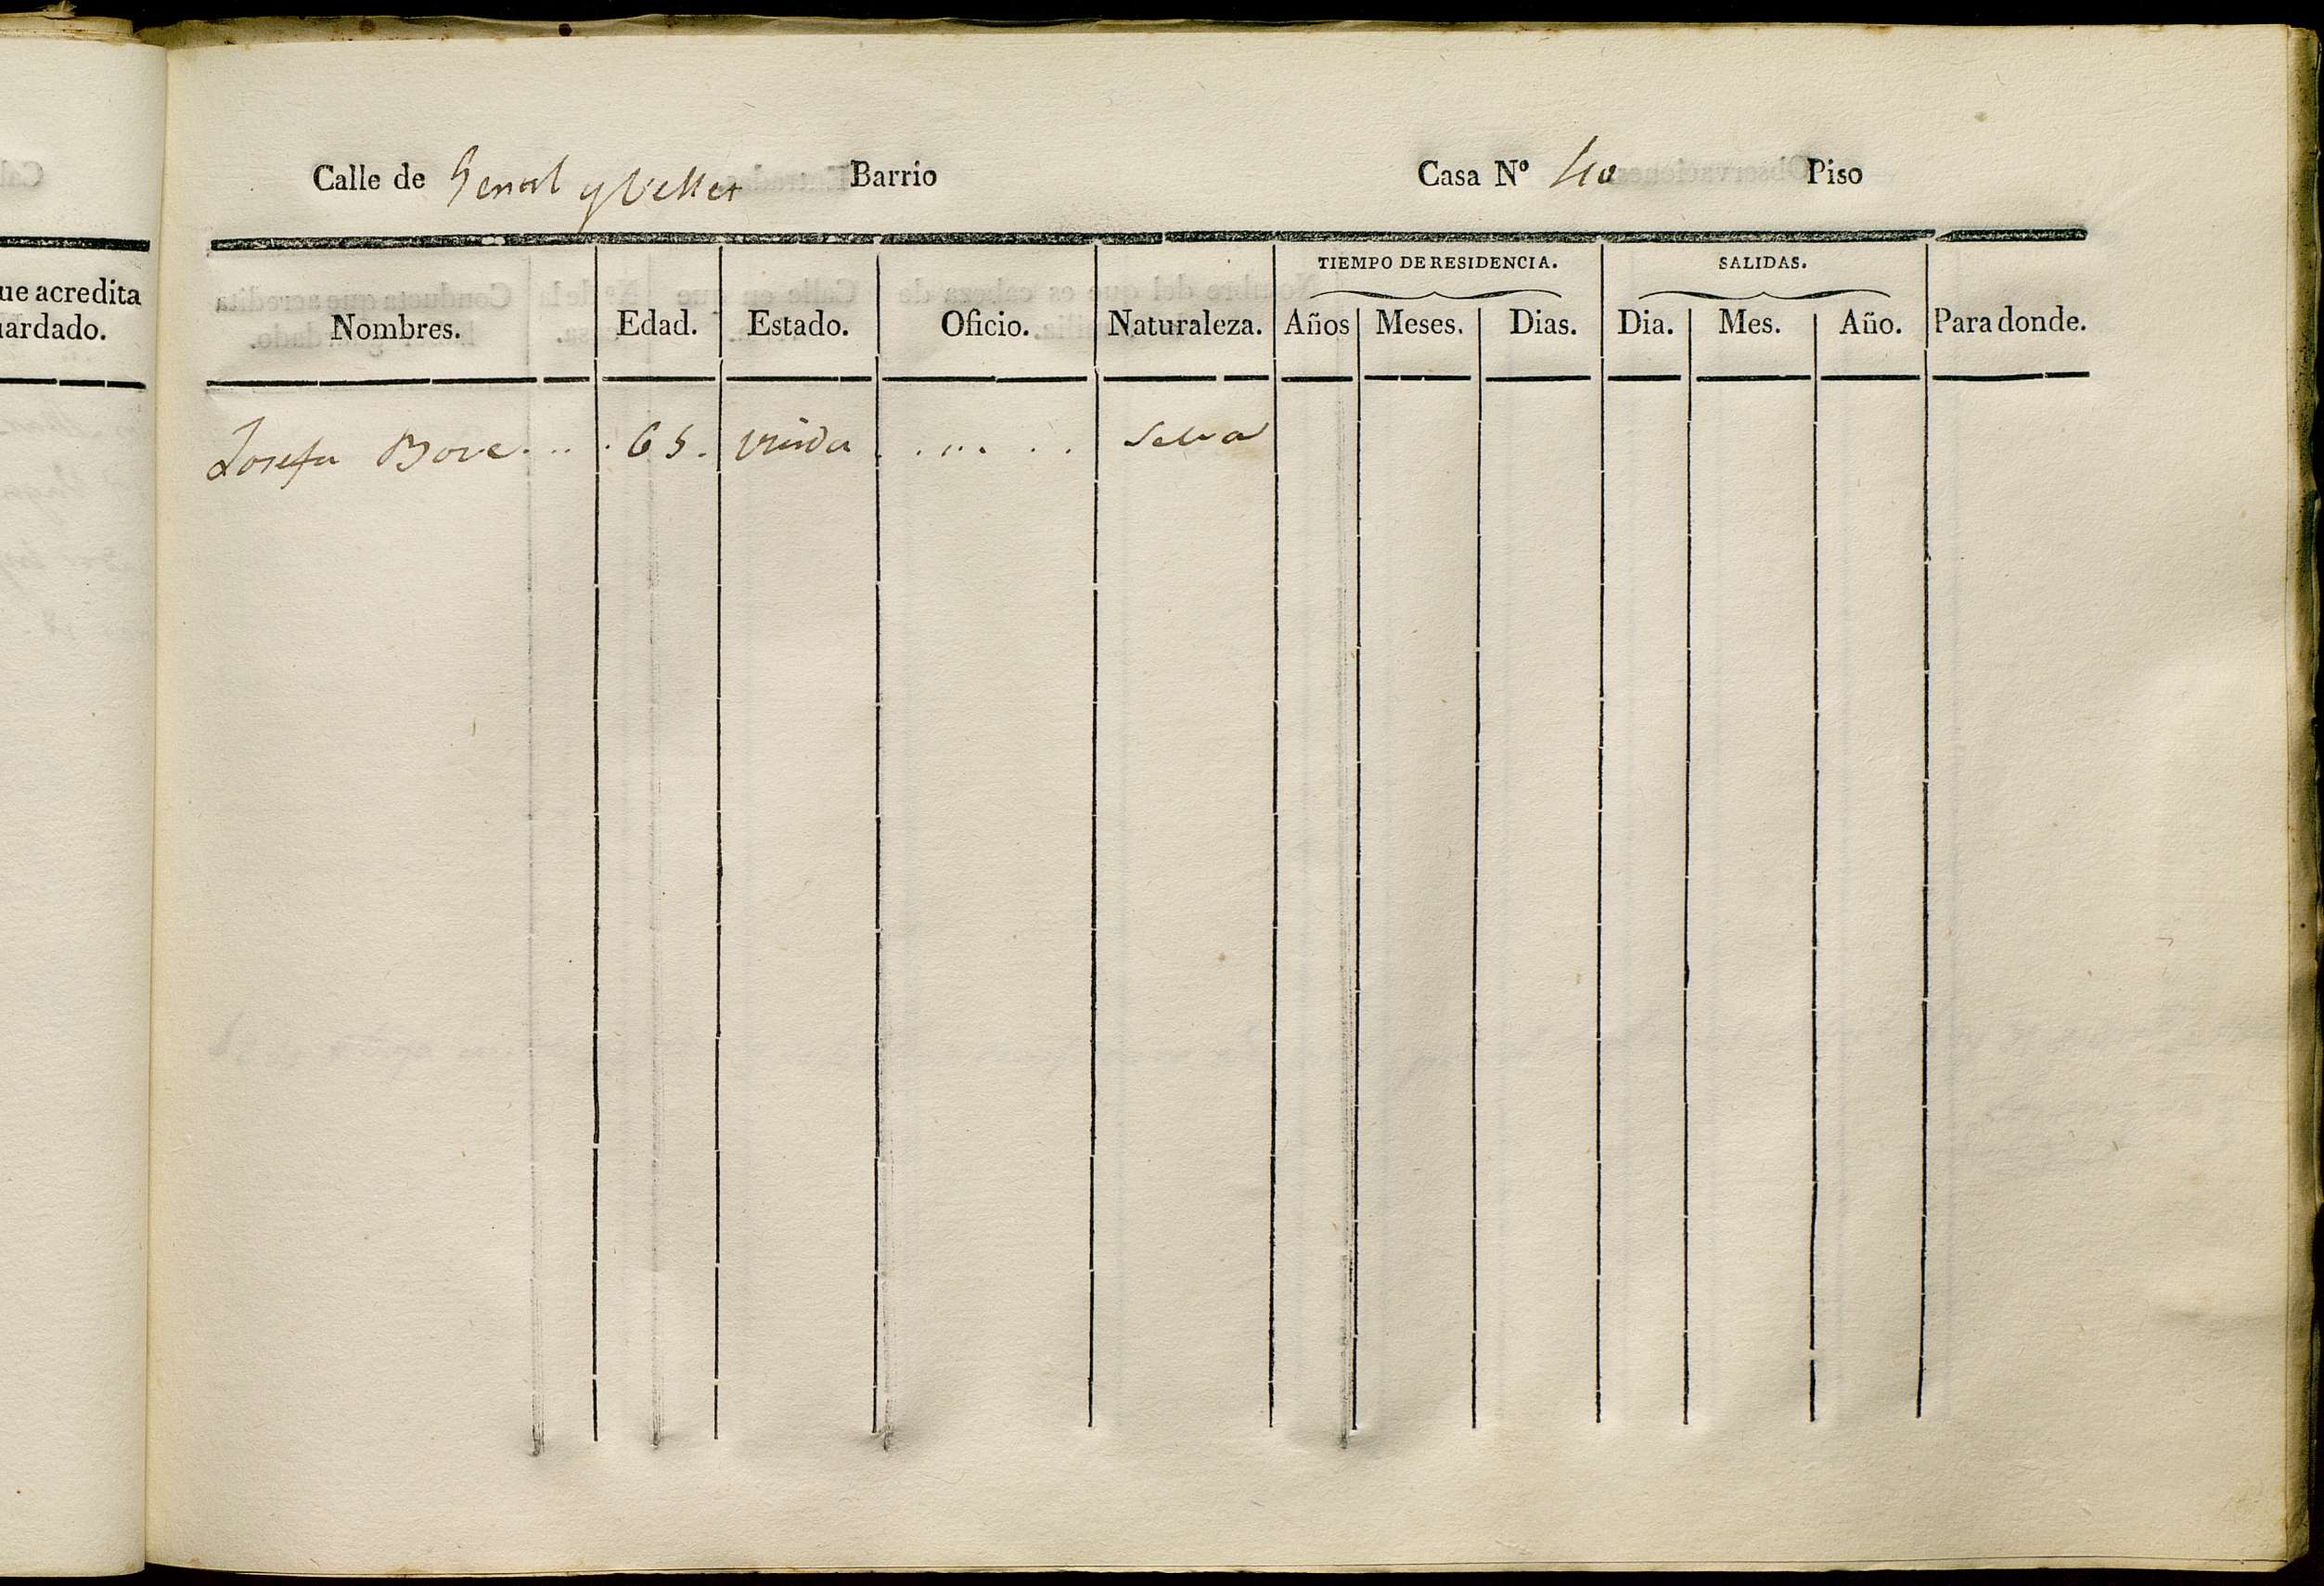 ue acredita
ardado.
Calle de Serral y Vellet Barrio Casa Nº 40 Piso
TIEMPO DE RESIDENCIA. SALIDAS.
Nombres. Edad. Estado. Oficio. Naturaleza. Años Meses. Dias. Dia. Mes. Año. Para donde.
Josefa Bove . . . . 65. viuda . . . . . . Selva